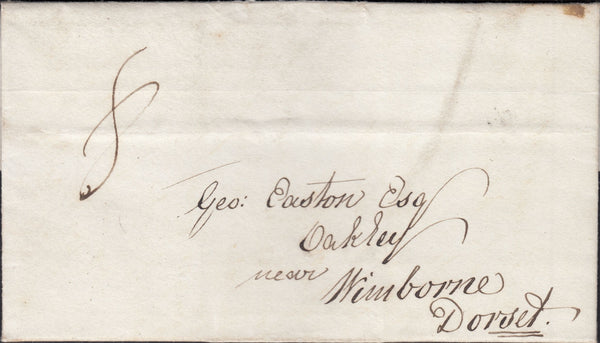 8
Geo: Easton Esq
Oakley
near
Wimborne
Dorset.